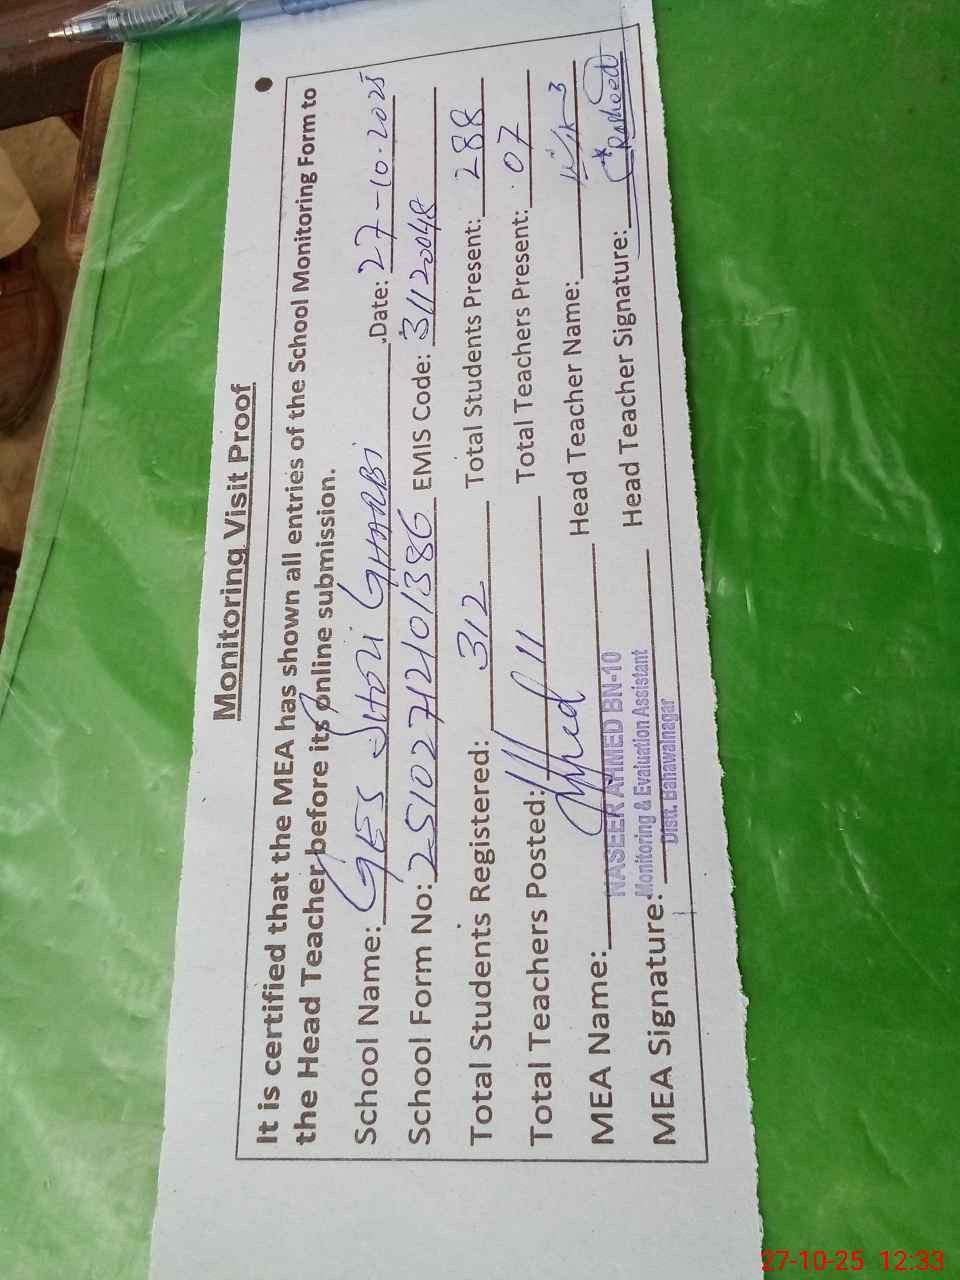 Monitoring Visit Proof
It is certified that the MEA has shown all entries of the School Monitoring Form to
the Head Teacher before its online submission.
School Name: GES SHORI GHARBI Date: 27-10-2025
School Form No: 25102712101386 EMIS Code: 31120048
Total Students Registered: 312 Total Students Present: 288
Total Teachers Posted: 11 Total Teachers Present: 07
MEA Name: Head Teacher Name:
NASEER AHMED BN-10
Monitoring & Evaluation Assistant
Distt. Bahawalnagar
MEA Signature: Head Teacher Signature: Rasheed
27-10-25 12:33